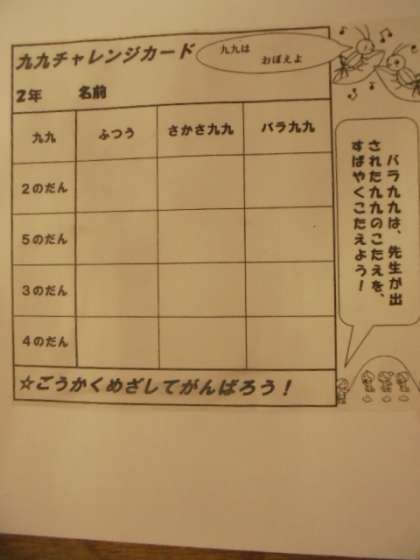 九九チャレンジカード
九九は
おぼえよ
2年 名前
九九 ふつう さかさ九九 バラ九九
2のだん
5のだん
3のだん
4のだん
☆ごうかくめざしてがんばろう!
バラ九九は、先生が出
された九九のこたえを、
すばやくこたえよう!